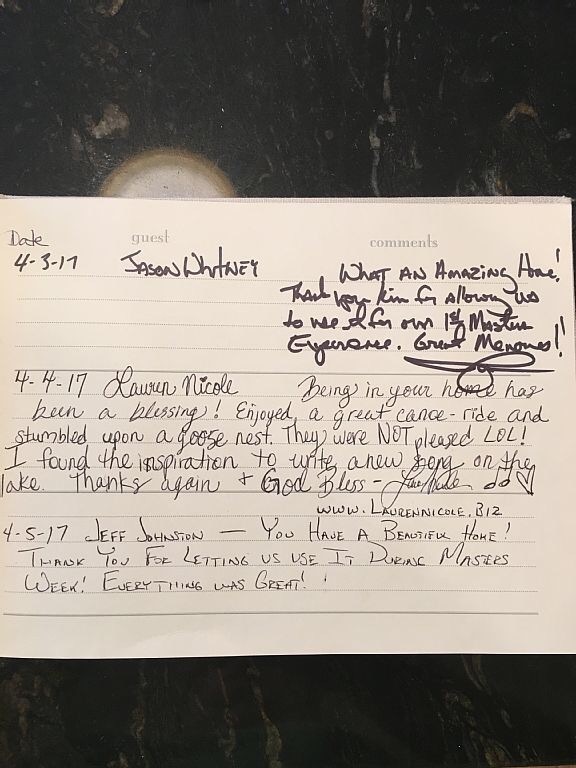 Date guest comments
4-3-17 Jason Whitney What An Amazing Home!
Thank you Kim for allowing us
to use it for our 1st Masters
Experience. Great Memories!!
4-4-17 Lauren Nicole Being in your home has
been a blessing! Enjoyed a great canoe-ride and
stumbled upon a goose nest. They were NOT pleased LOL!
I found the inspiration to write a new song on the
lake. Thanks again + God Bless -
www.LaurenNicole.Biz
4-5-17 Jeff Johnston — You Have A Beautiful Home!
Thank You For Letting us use It During Masters
Week! Everything was Great!!